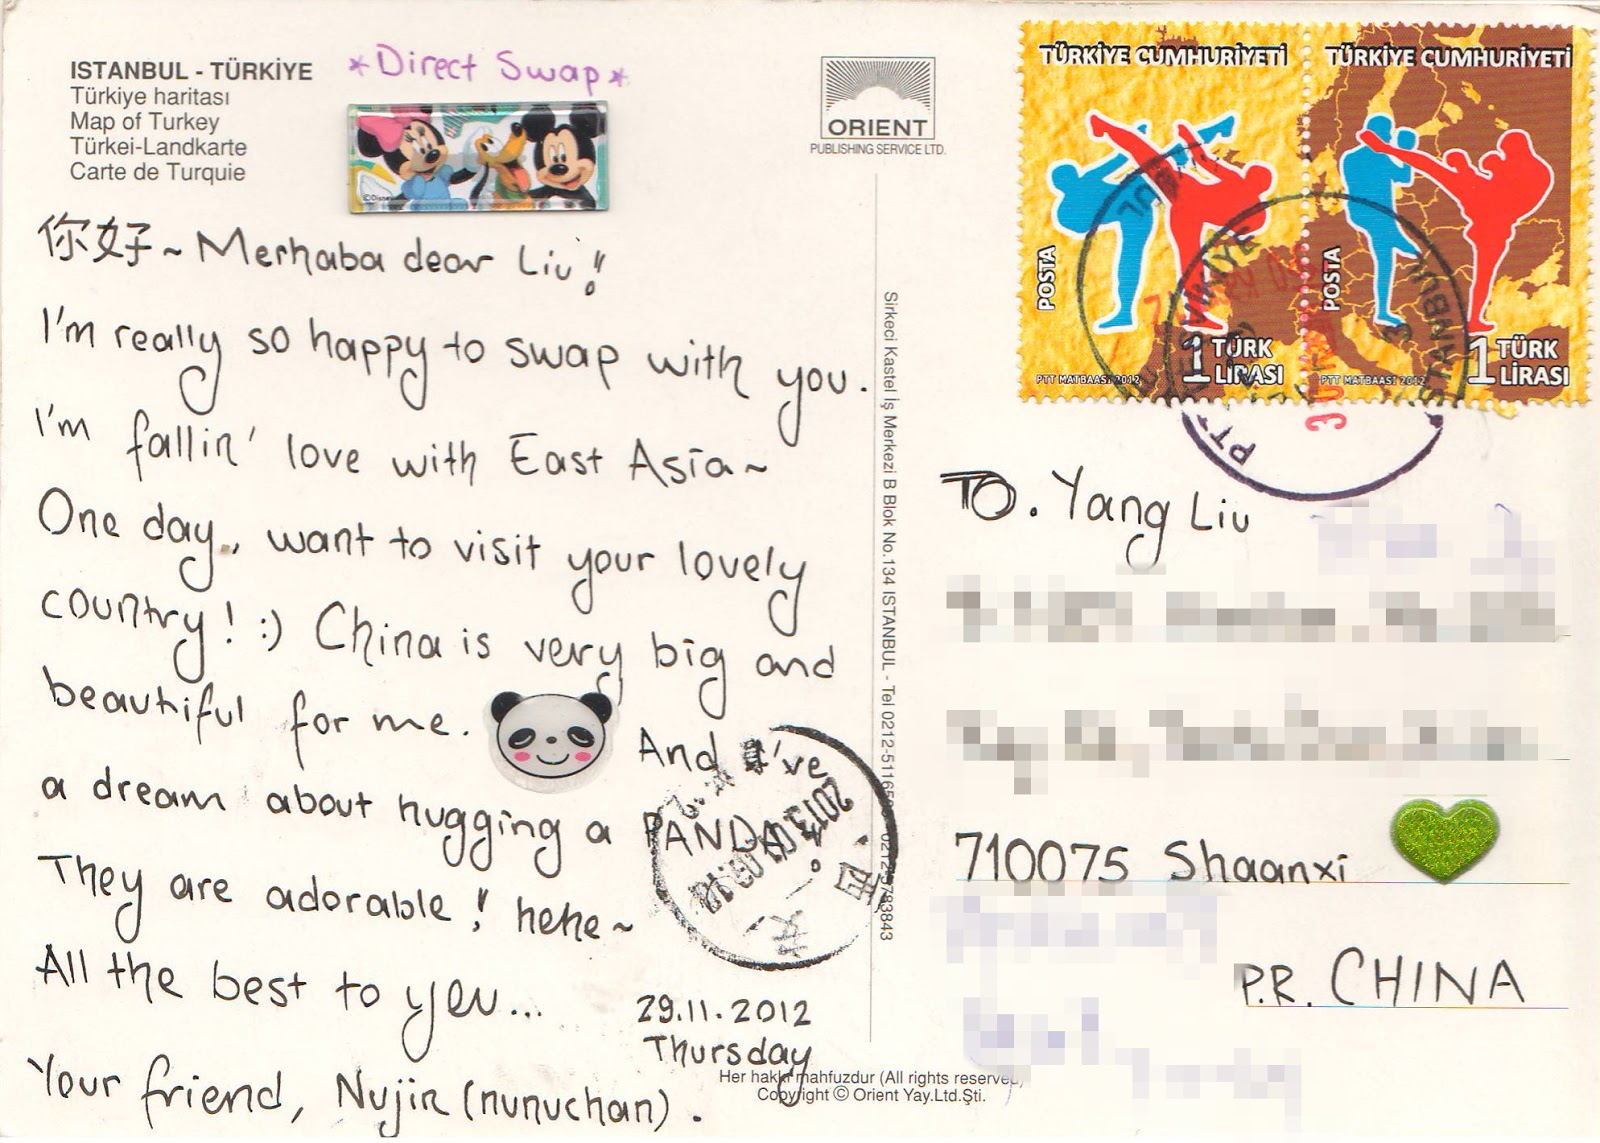 ISTANBUL - TÜRKİYE
Türkiye haritası
Map of Turkey
Türkei-Landkarte
Carte de Turquie
*Direct Swap*
©Disney
你好~ Merhaba dear Liu!
I'm really so happy to swap with you.
I'm fallin' love with East Asia~
One day., want to visit your lovely
country! :) China is very big and
beautiful for me. And I've
a dream about hugging a PANDA.
They are adorable! hehe~
All the best to you...
29.11.2012
Thursday
Your friend, Nujin (nunuchan).
ORIENT
PUBLISHING SERVICE LTD.
Sirkeci Kastel İş Merkezi B Blok No.134 ISTANBUL - Tel 0212-5116
Her hakkı mahfuzdur (All rights reserved)
Copyright © Orient Yay.Ltd.Şti.
TÜRKİYE CUMHURİYETİ
POSTA
1 TÜRK
LİRASI
PTT MATBAASI 2012
TÜRKİYE CUMHURİYETİ
POSTA
1 TÜRK
LİRASI
PTT MATBAASI 2012
PTT
TO. Yang Liu
710075 Shaanxi
P.R. CHINA
2013
西